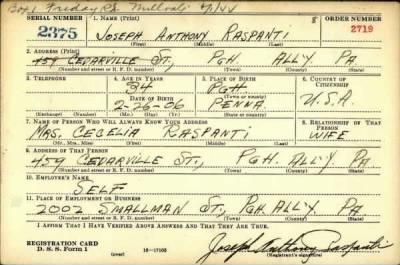 Box 1 Friday RS
SERIAL NUMBER 1. NAME (Print) ORDER NUMBER
2375 JOSEPH ANTHONY RASPANTI 2719
(First) (Middle) (Last)
2. ADDRESS (Print)
459 CEDARVILLE ST., PGH. ALL'Y PA
(Number and street or R. F. D. number) (Town) (County) (State)
3. TELEPHONE 4. AGE IN YEARS 5. PLACE OF BIRTH 6. COUNTRY OF CITIZENSHIP
34 PGH
DATE OF BIRTH (Town or county)
2-26-06 PENNA. U.S.A.
(Exchange) (Number) (Mo.) (Day) (Yr.) (State or country)
7. NAME OF PERSON WHO WILL ALWAYS KNOW YOUR ADDRESS 8. RELATIONSHIP OF THAT PERSON
MRS. CECELIA RASPANTI WIFE
(Mr., Mrs., Miss) (First) (Middle) (Last)
9. ADDRESS OF THAT PERSON
459 CEDARVILLE ST., PGH. ALL'Y PA
(Number and street or R. F. D. number) (Town) (County) (State)
10. EMPLOYER'S NAME
SELF
11. PLACE OF EMPLOYMENT OR BUSINESS
2002 SMALLMAN ST., PGH. ALL'Y PA
(Number and street or R. F. D. number) (Town) (County) (State)
I AFFIRM THAT I HAVE VERIFIED ABOVE ANSWERS AND THAT THEY ARE TRUE.
REGISTRATION CARD
D. S. S. Form 1 (over) 16—17105 Joseph Anthony Raspanti
(Registrant's signature)